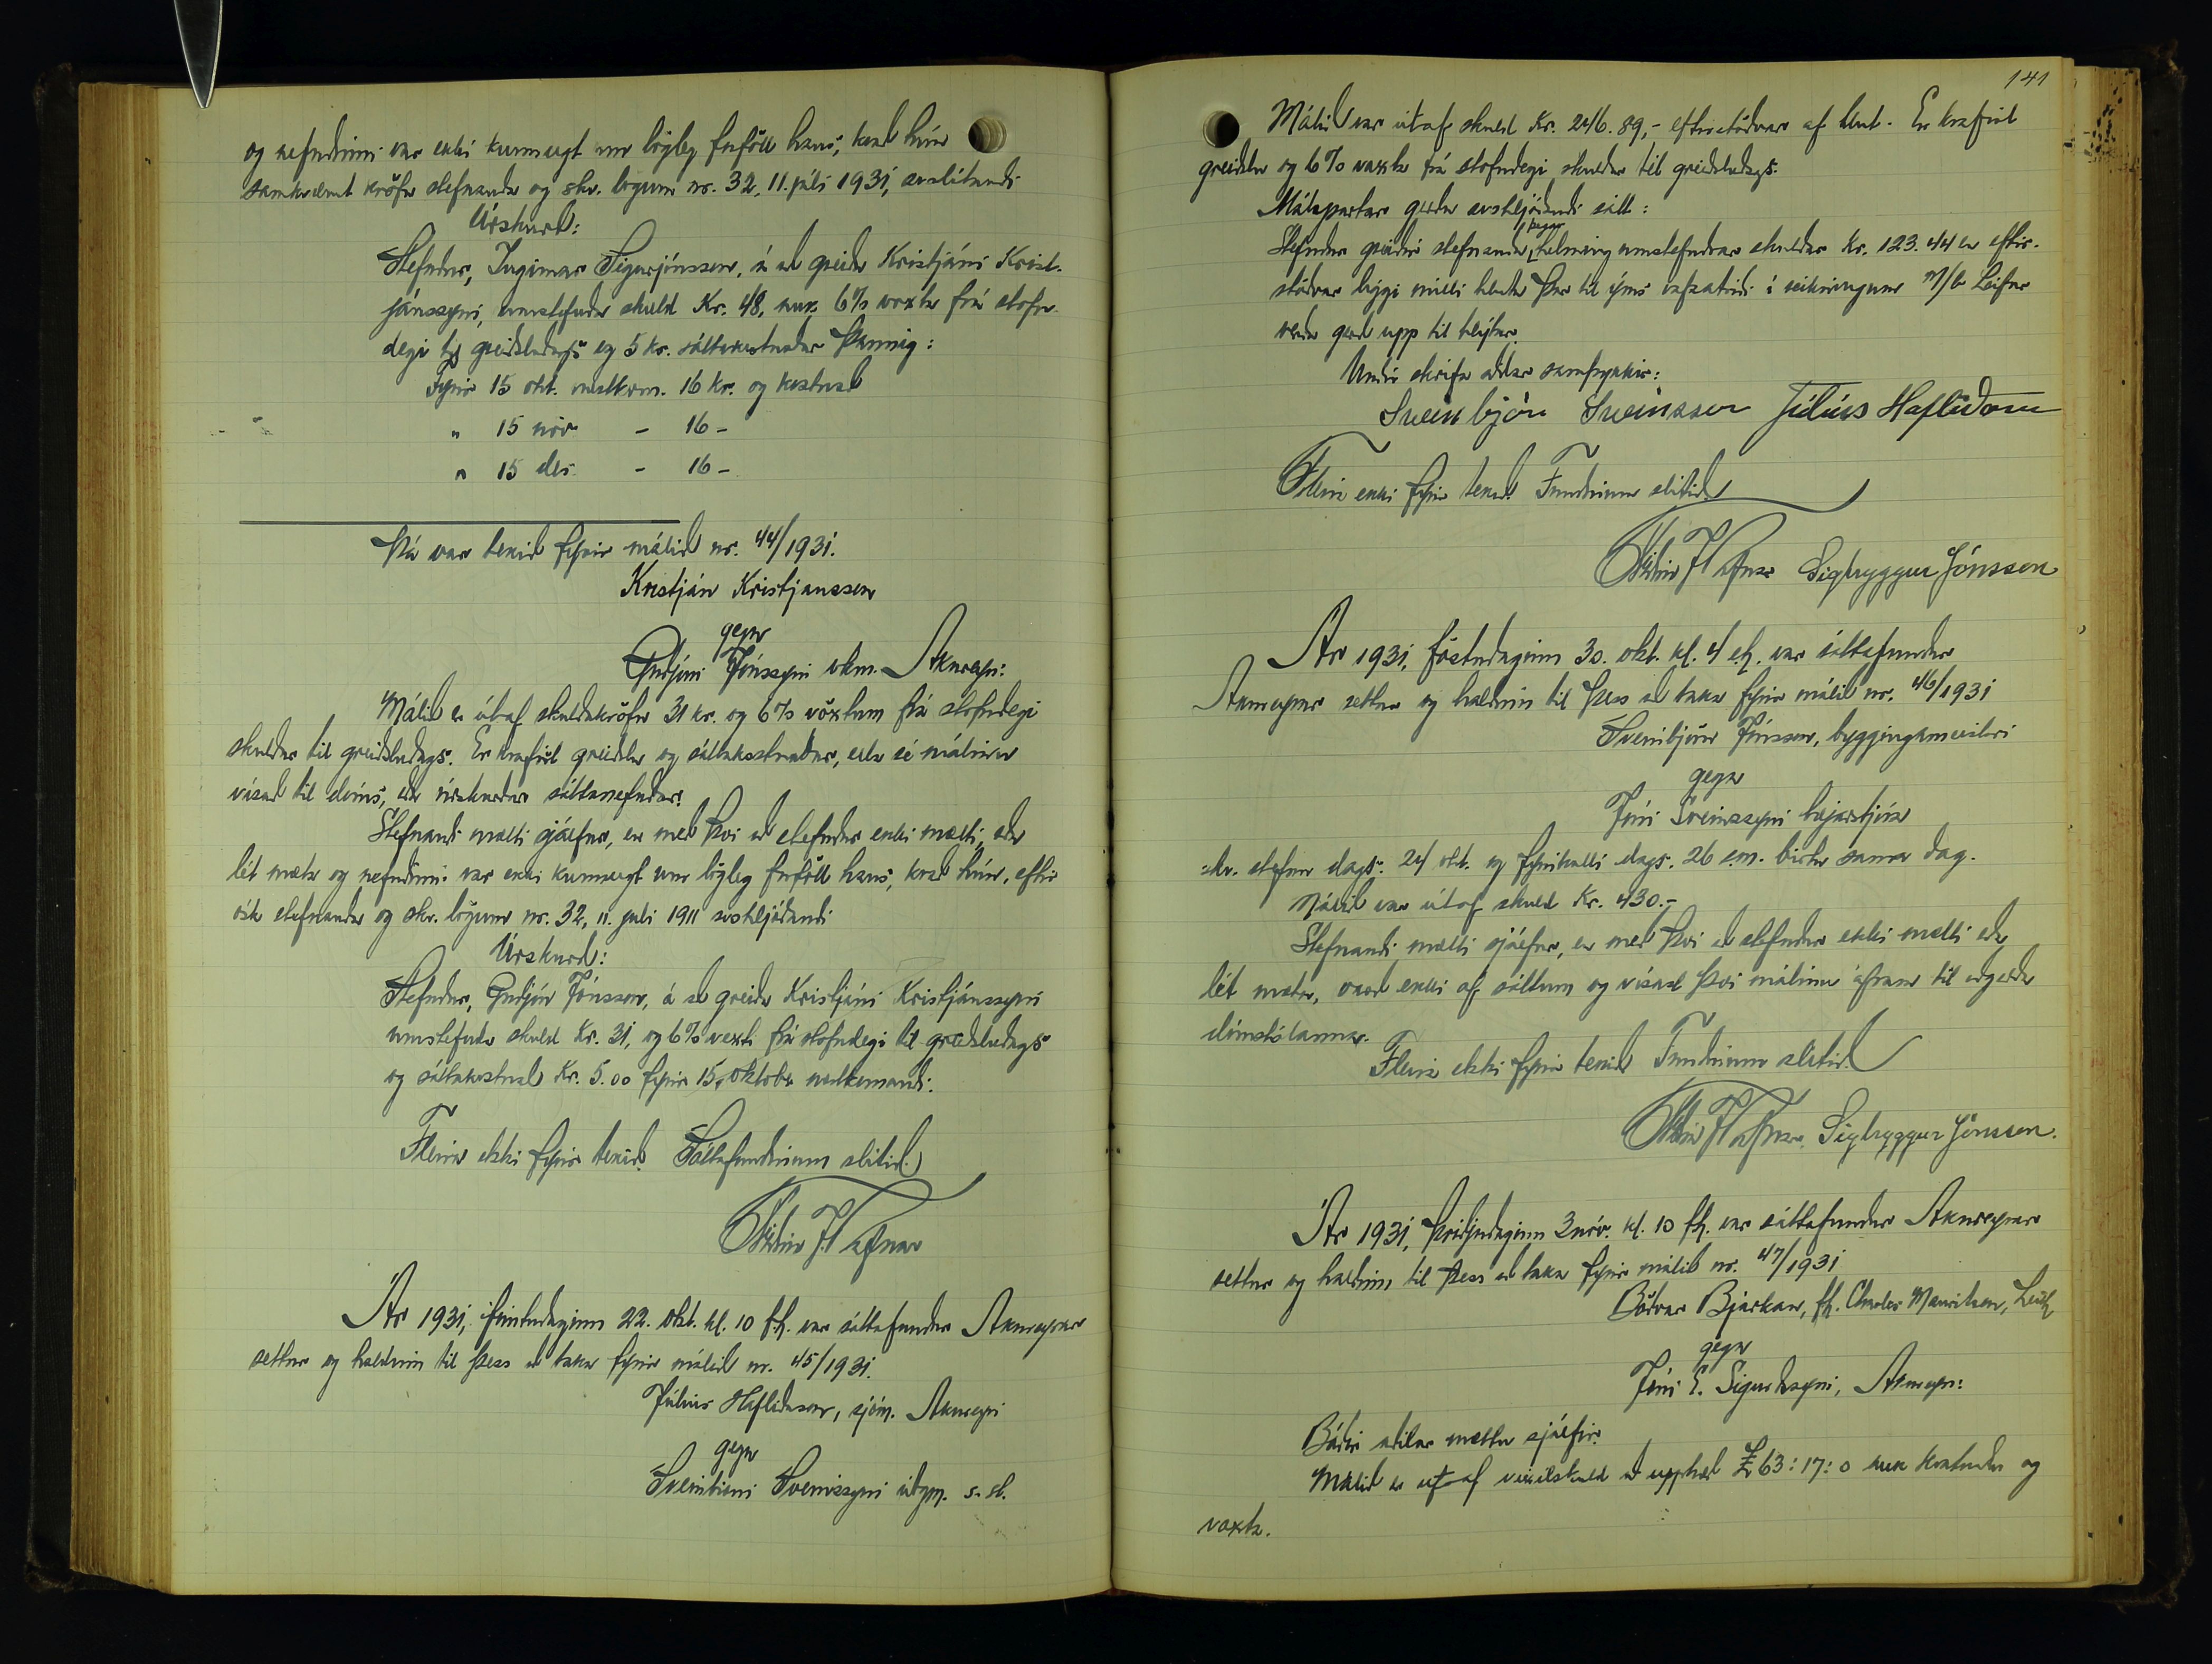 og nefndinni var ekki kunnugt um lögleg forföll hans, kvað hún
samkvæmt kröfu stefnanda og skv. lögum nr. 32, 11. júlí 1931, svolátandi
Úrskurð:
Stefndur, Ingimar Sigurjónsson, á að greiða Kristjáni Krist-
jánssyni, umstefnda skuld Kr. 48, auk 6% vaxta frá stofn-
degi til greiðsludags og 5 kr. sáttakostnaðar þannig:
Fyrir 15 okt. næstkom. 16 kr. og kostnað
" 15 nóv. - 16 -
" 15 des. - 16 -
Þá var tekið fyrir málið nr. 44/1931.
Kristján Kristjansson
gegn
Guðjóni Jónssyni vkm. Akureyri:
Málið er útaf skuldakröfu 31 kr. og 6% vöxtum frá stofndegi
skuldar til greiðsludags. Er krafist greiðslu og sáttakostnaðar, ella sé málinu
vísað til dóms, eða úrskurðar sáttanefndar.
Stefnandi mætti sjálfur, en með því að stefndur ekki mætti, eða
lét mæta og nefndinni var ekki kunnugt um lögleg forföll hans, kvað hún, eftir
ósk stefnanda og skv. lögum nr. 32, 11. júlí 1911 svohljóðandi
Úrskurð:
Stefndur, Guðjón Jónsson, á að greiða Kristjáni Kristjánssyni
umstefnda skuld Kr. 31, og 6% vexti frá stofndegi til greiðsludags
og sáttakostnað Kr. 5.00 fyrir 15. oktober næstkomandi.
Fleira ekki fyrir tekið. Sáttafundinum slitið.
Ár 1931, fimtudaginn 22. okt. kl. 10 fh. var sáttafundur Akureyrar
settur og haldinn til þess að taka fyrir málið nr. 45/1931.
Júlíus Hafliðason, sjóm. Akureyri
gegn
Sveinbirni Sveinssyni útgm. s. st.
141
Málið var útaf skuld Kr. 246.89,- eftirstöðvar af hlut. Er krafist
greiðslu og 6% vaxta frá stofndegi skuldar til greiðsludags.
Málspartar gerðu svohljóðandi sátt:
þegar
Stefndur greiðir stefnanda helming umstefndrar skuldar kr. 123.44 en eftir-
stöðvar liggi milli hluta þar til ýms vafaatriði í reikningum M/b Leifur
verða gerð upp til hlýtar.
Undirskrifa aðilar samþykkir:
Sveinbjörn Sveinsson Júlíus Hafliðason
Fleira ekki fyrir tekið. Fundinum slitið.
Sigtryggur Jónsson
Ár 1931, föstudaginn 30. okt. kl. 4 e.h. var sáttafundur
Akureyrar settur og haldinn til þess að taka fyrir málið nr. 46/1931
Sveinbjörn Jónsson, byggingameistari
gegn
Jóni Sveinssyni bæjarstjóra
skv. stefnu dags. 24 okt. og fyrirkalli dags. 26 s.m. birtu sama dag.
Málið var útaf skuld Kr. 430.-
Stefnandi mætti sjálfur, en með því að stefndur ekki mætti eða
lét mæta, varð ekki af sáttum og vísast því málinu áfram til aðgerða
dómstólanna.
Fleira ekki fyrir tekið Fundinum slitið.
Sigtryggur Jónsson.
Ár 1931, þriðjudaginn 3 nóv. kl. 10 fh. var sáttafundur Akureyrar
settur og haldinn til þess að taka fyrir málið nr. 47/1931
Böðvar Bjarkan, fh. Charles Mauritzen, Leith
gegn
Jóni E. Sigurðssyni, Akureyri:
Báðir aðilar mættu sjálfir.
Málið er útaf víxilskuld að upphæð £ 63:17:0 auk kostnaðar og
vaxta.